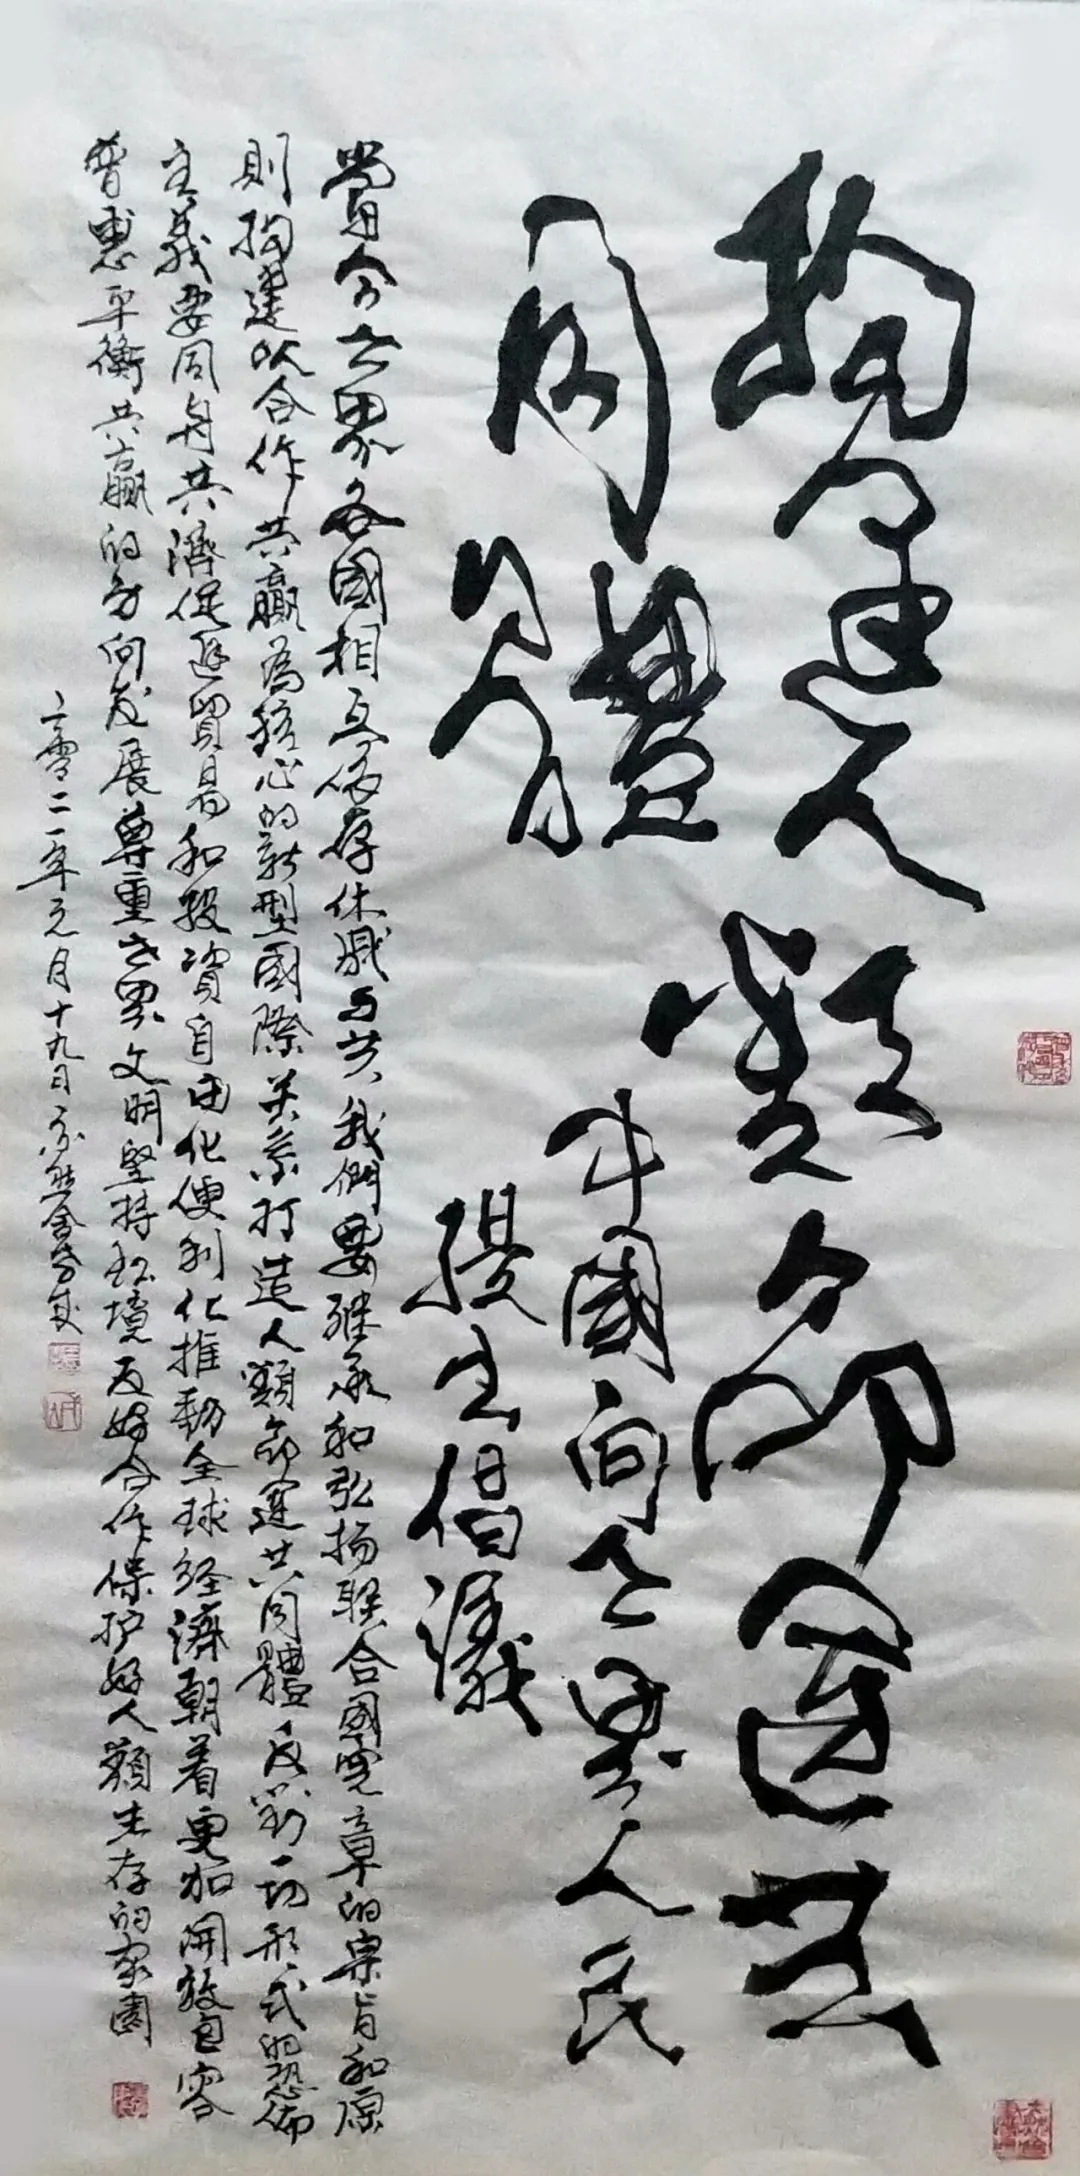 構建人類命運共
同體
中國向世界人民
提出倡議
當今世界各國相互依存休戚与共我們要继承和弘扬联合國宪章的宗旨和原
則構建以合作共贏為核心的新型國際关系打造人類命運共同體反對一切形式的恐怖
主義要同舟共濟促進貿易和投資自由化便利化推動全球经濟朝着更加開放包容
普惠平衡共贏的方向发展尊重世界文明坚持环境友好合作保护好人類生存的家園
二零二一年元月十九日